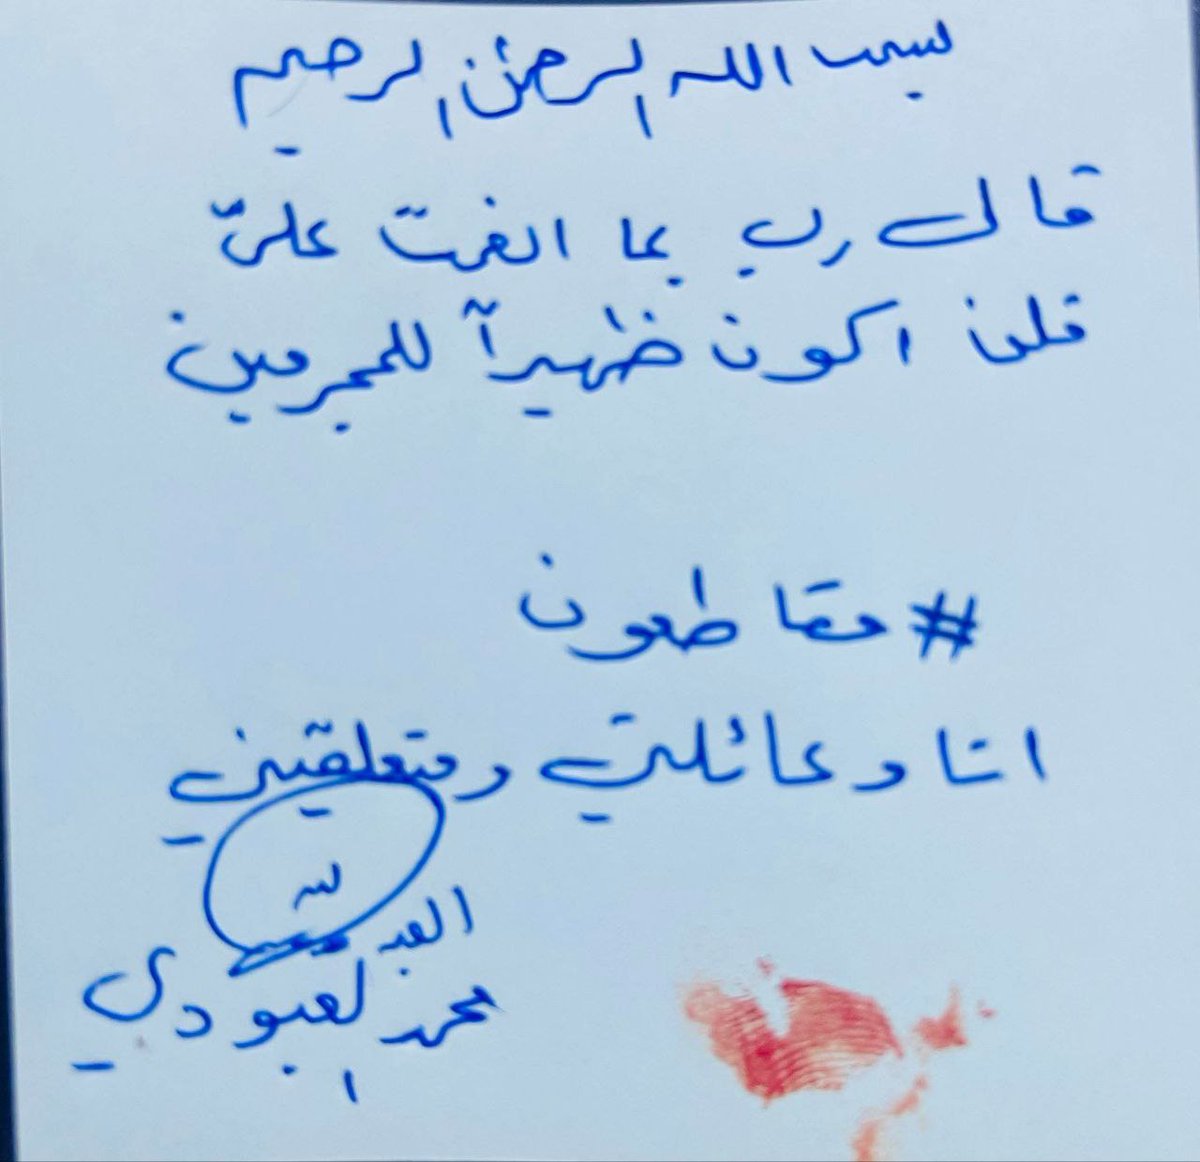 بسم الله الرحمن الرحيم
قال رب بما انعمت عليّ
فلن اكون ظهيراً للمجرمين
#مقاطعون
انا وعائلتي ومتعلقيني
العبد لله
محمد العبودي